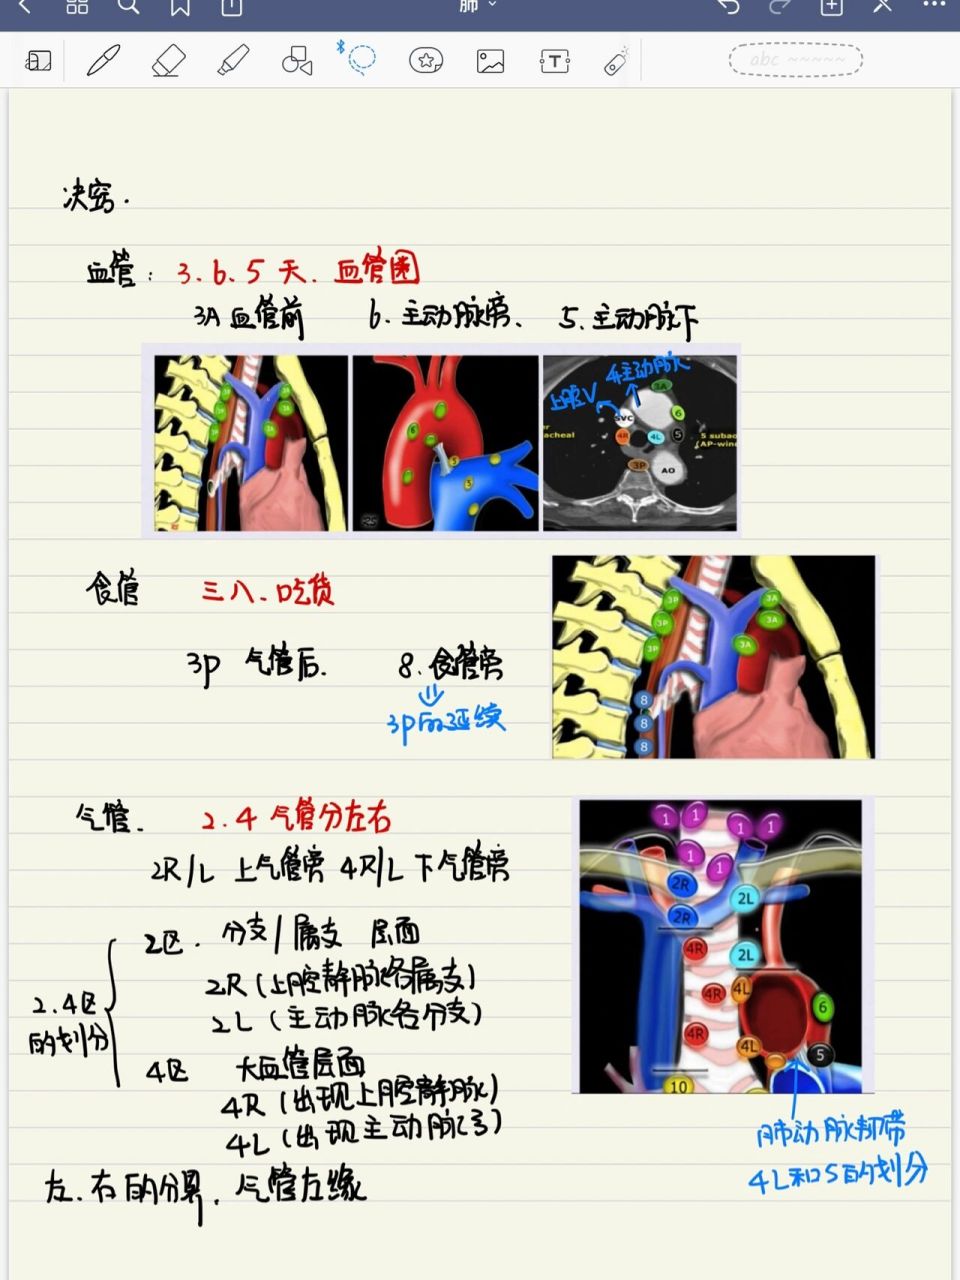 肺
abc ~~~~~
决窍.
血管: 3.6.5 天. 血管圈
3A 血管前 6. 主动脉旁、 5. 主动脉下
3P
3P
3P
3A
3A
3A
6
5
5
上腔V
主动脉
3A
SVC
6
4R
4L
5
3P
AO
acheal
5 subao
AP-wind
食管 三八.吃货
3P 气管后. 8. 食管旁
3P的延续
3P
3P
3P
3A
3A
3A
8
8
8
气管. 2.4 气管分左右
2R/L 上气管旁 4R/L 下气管旁
2.4区的划分
2区. 分支/属支 层面
2R (上腔静脉各属支)
2L (主动脉各分支)
4区 大血管层面
4R (出现上腔静脉)
4L (出现主动脉弓)
左.右的分界. 气管左缘
1 1 1 1
1 1
2R
2R
2L
2L
4R
4R
4R
4L
4L
6
5
10
肺动脉韧带
4L和5的划分